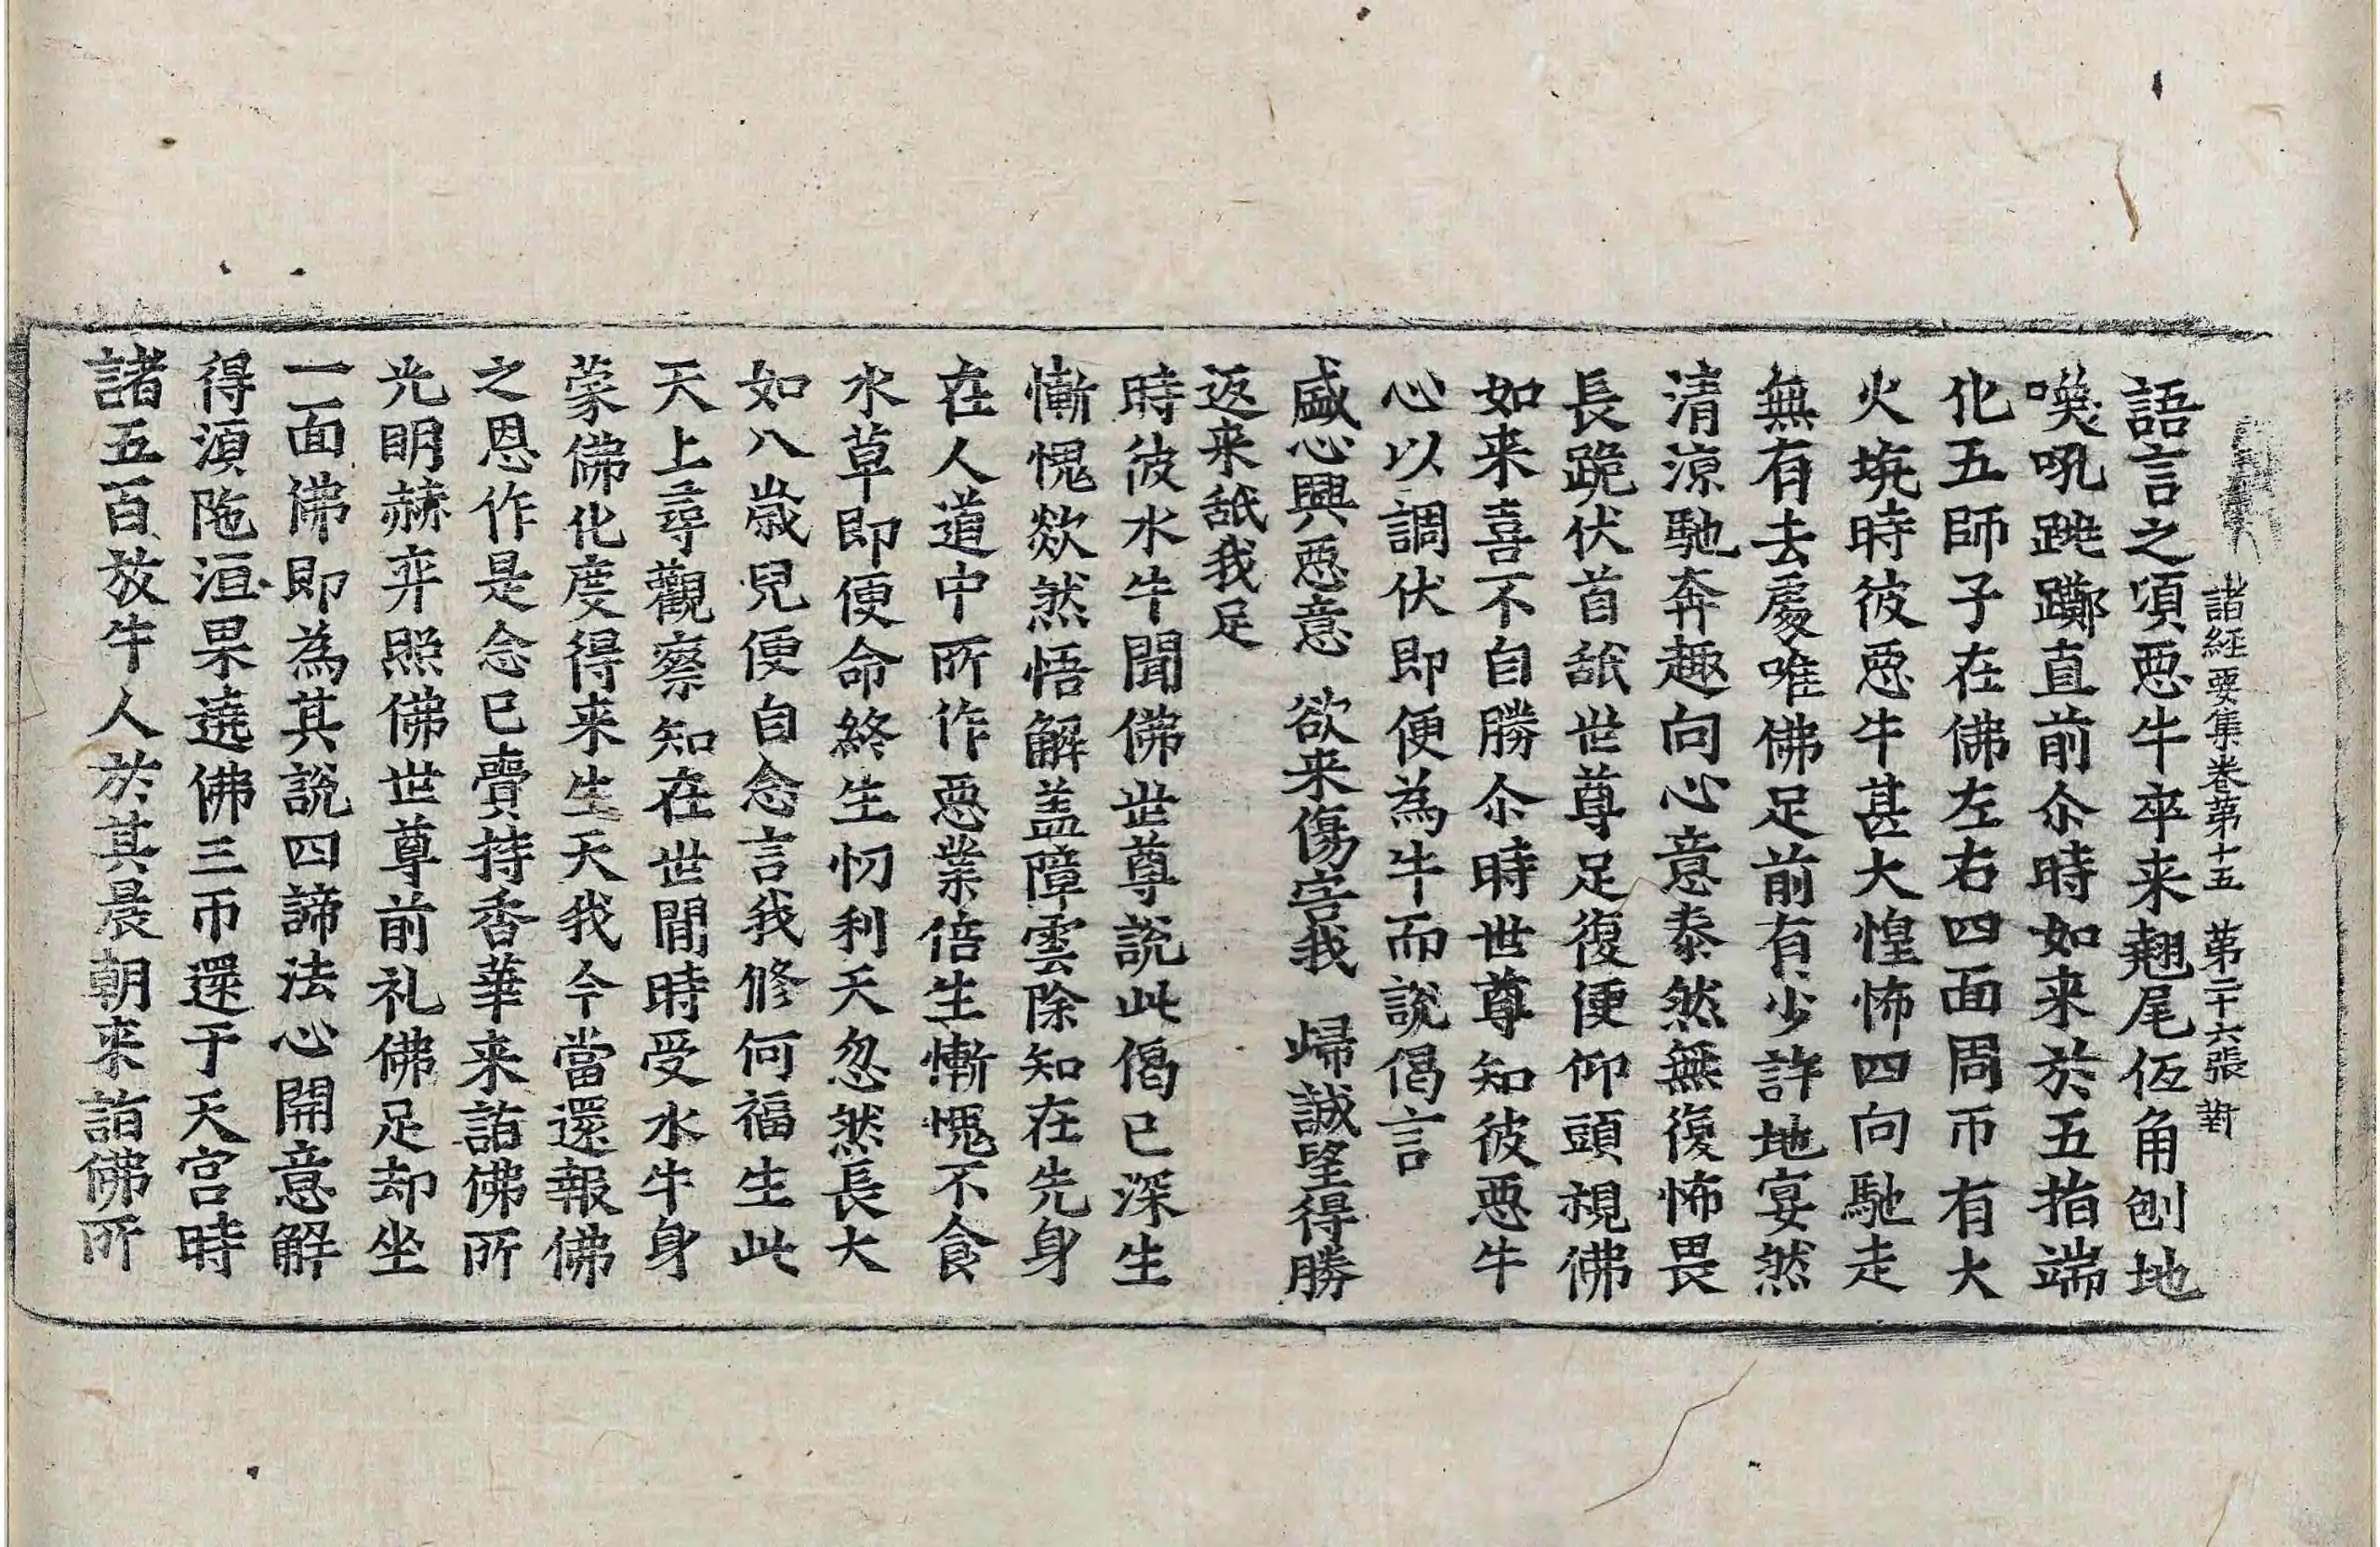 諸經要集卷第十五 第二十六張 對
語言之頃惡牛卒来翹尾仾角刨地
喚吼跳躑直前尒時如来於五指端
化五師子在佛左右四面周帀有大
火坑時彼惡牛甚大惶怖四向馳走
無有去處唯佛足前有少許地宴然
清涼馳奔趣向心意泰然無復怖畏
長跪伏首舐世尊足復便仰頭視佛
如来喜不自勝尒時世尊知彼惡牛
心以調伏即便為牛而說偈言
盛心興惡意 欲来傷害我 歸誠望得勝
返来舐我足
時彼水牛聞佛世尊說此偈已深生
慚愧欻然悟解盖障雲除知在先身
在人道中所作惡業倍生慚愧不食
水草即便命終生忉利天忽然長大
如八歲兒便自念言我修何福生此
天上尋觀察知在世間時受水牛身
蒙佛化度得来生天我今當還報佛
之恩作是念已賷持香華来詣佛所
光明赫弈照佛世尊前礼佛足却坐
一面佛即為其說四諦法心開意解
得湏陁洹果遶佛三帀還于天宮時
諸五百放牛人於其晨朝来詣佛所